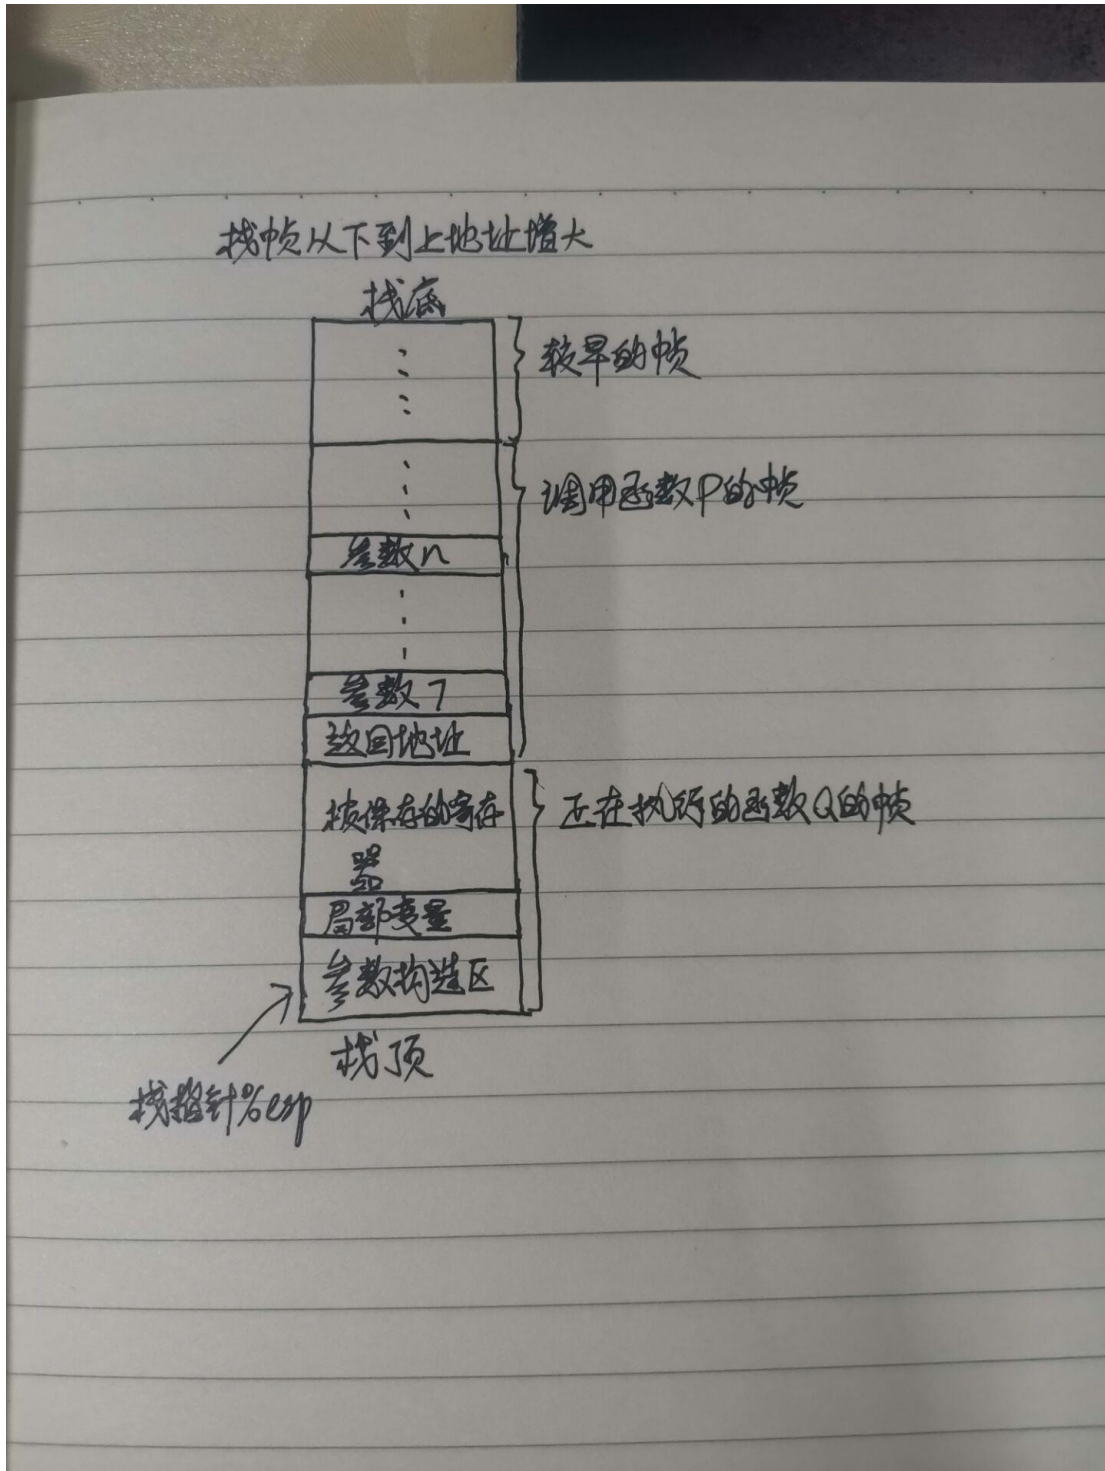 栈帧从下到上地址增大
栈底
较早的帧
调用函数P的帧
参数n
参数7
返回地址
被保存的寄存
器
正在执行的函数Q的帧
局部变量
参数构造区
栈顶
栈指针%esp